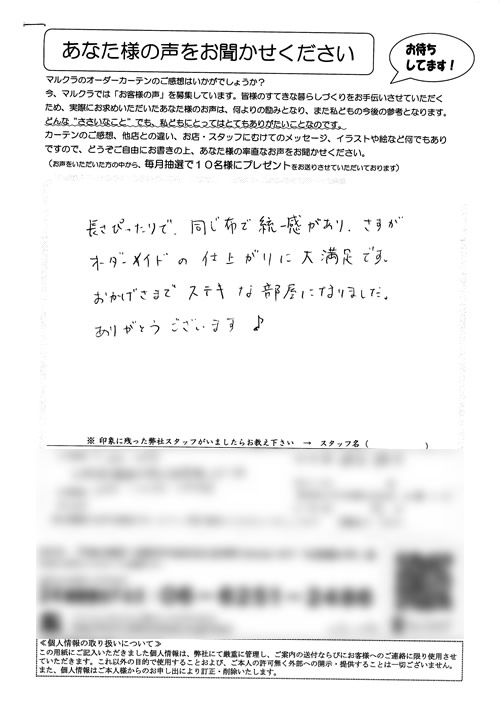 あなた様の声をお聞かせください
お待ち
してます!
マルクラのオーダーカーテンのご感想はいかがでしょうか?
今、マルクラでは「お客様の声」を募集しています。皆様のすてきな暮らしづくりをお手伝いさせていただく
ため、実際にお求めいただいたあなた様のお声は、何よりの励みとなり、また私どもの今後の参考となります。
どんな“ささいなこと”でも、私どもにとってはとてもありがたいことなのです。
カーテンのご感想、他店との違い、お店・スタッフにむけてのメッセージ、イラストや絵など何でもあり
ですので、どうぞご自由にお書きの上、あなた様の率直なお声をお聞かせください。
(お声をいただいた方の中から、毎月抽選で10名様にプレゼントをお送りさせていただいております)
長さぴったりで、同じ布で統一感があり、さすが
オーダーメイドの仕上がりに大満足です。
おかげさまでステキな部屋になりました。
ありがとうございます♪
※ 印象に残った弊社スタッフがいましたらお教え下さい → スタッフ名 ( )
06-6251-2486
≪個人情報の取り扱いについて≫
この用紙にご記入いただきました個人情報は、弊社にて厳重に管理し、ご案内の送付ならびにお客様へのご連絡に限り使用させ
ていただきます。これ以外の目的で使用することおよび、ご本人の許可無く外部への開示・提供することは一切ございません。
また、個人情報はご本人様からのお申し出により訂正・削除いたします。